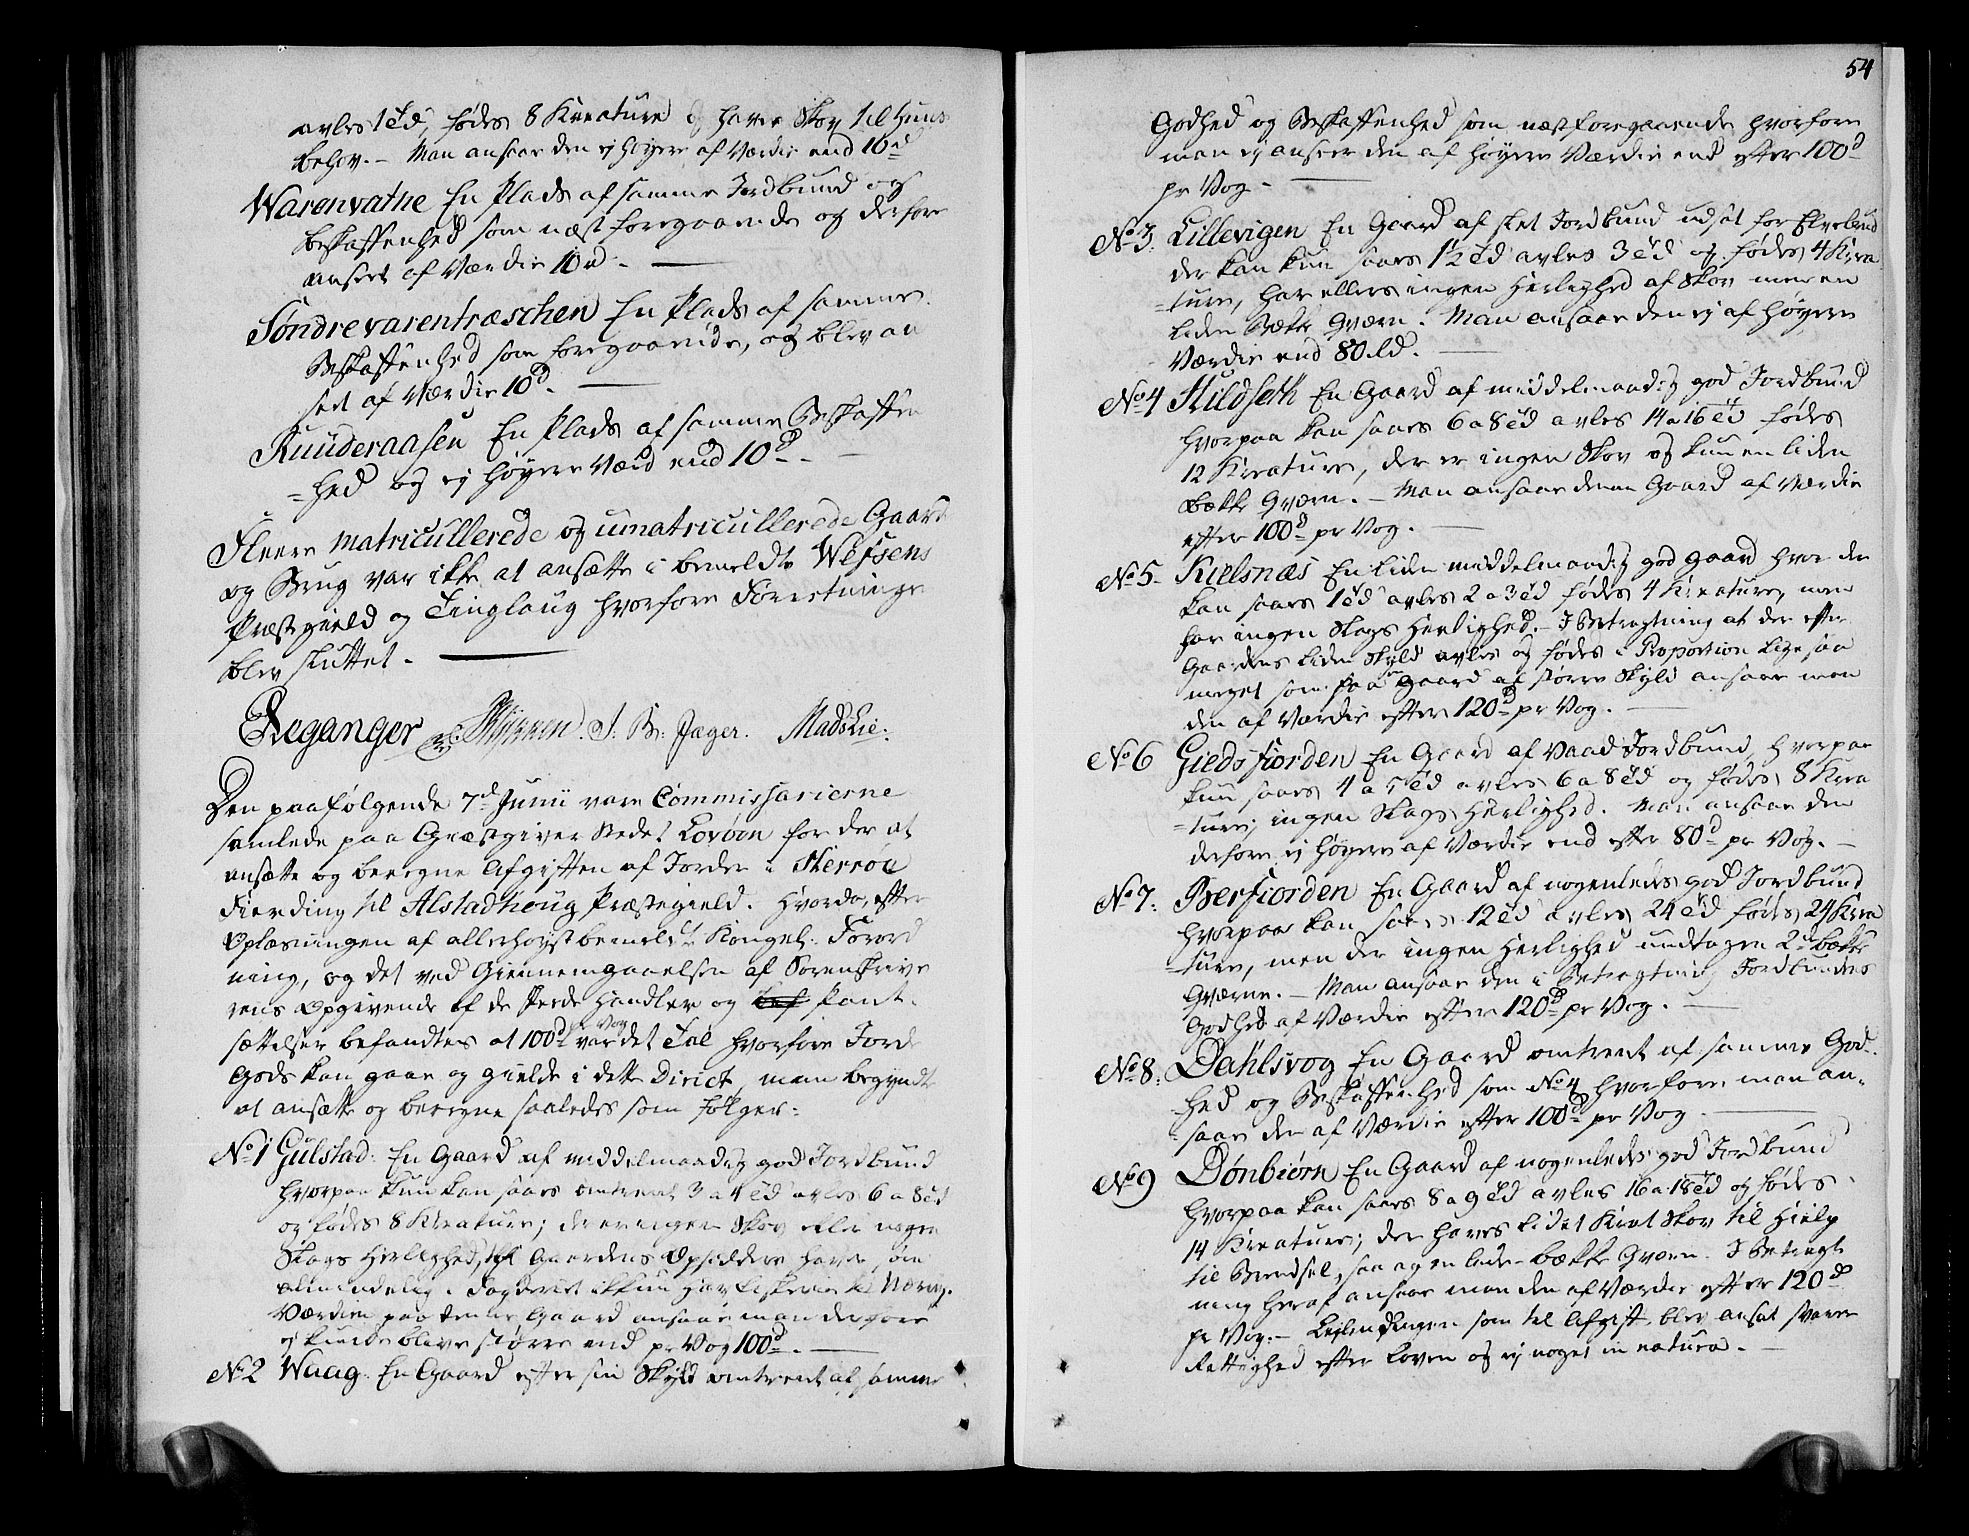 avles 1 td, fødes 8 Kreature og haver Skov til huus
behov. – Man ansaae den ej høyere af Værdie end 10 rd
Warenvathe En Plads af samme Jordbund og
beskaffenhed som næst foregaaende og derfore
anseet af Værdie 10 rd. —
Søndrevarentræschen En Plads af samme
Beskaffenhed som foregaaende, og blev an
seet af Værdie 10 d. —
Ruuderaasen En Plads af samme Beskaffen
=hed og ej høyere Værd end 10 d. —
Fleere matricullerede og umatricullerede Gaarde
og Brug var ikke at ansætte i bemeldte Wefsens
Præstegield og Tinglaug hvorfore Forretningen
blev sluttet. —
Leganger Jersin. J. B. Jæger. Mads Lie.
Den paafølgende 7d Junii vare Commissarierne
samlede paa Giæstgiver Stedet Lovøen for der at
ansætte og beregne Afgiften af Jorder i Herrøe
Fierding til Alstadhoug Præstegield. Hvorda, efter
Oplæsningen af allerhøystbemeldte Kongel: Forord
ning, og det ved Giennemgaaelsen af Sorenskrive
rens Opgivende af de skeede Handler og Pant-
sættelser befandtes at 100 d pr Vog var det Tal hvorfore Jorde
Gods kan gaae og gielde i dette Dirict, man begyndte
at ansætte og beregne saaledes som følger:
No 1 Gulstad: En Gaard af middelmaadig god Jordbund
hvorpaa kun kan saaes omtrent 3 a 4 td avles 6 a 8 td
og fødes 8 Kreature; der er ingen Skov eller nogen
Slags Herlighed, thi Gaardens Opsiddere haver, som
almindelig i Fogderiet ikkun har Fiskerie til Næring.
Værdien paa denne Gaard ansaae man derfore
ej kunde blive større end pr Vog 100 d. —
No 2 Waag: En Gaard efter sin Skyld omtrent af samme
54
Godhed og Beskaffenhed som næstforegaaende hvorfore
man ej anseer den af høyere Værdie end efter 100 d
pr Vog. —
No 3. Lillevigen En Gaard af slet Jordbund udsat for Elvebrud
der kan kun saaes 1½ td avles 3 td og fødes 4 Krea
=ture, har ellers ingen Herlighed af Skov men en
liden Bække Qværn. Man ansaae den ej af høyere
Værdie end 80 rd. —
No 4 Hildseth En Gaard af middelmaadig god Jordbund
hvorpaa kan saaes 6 a 8 td avles 14 a 16 td fødes
12 Kreature, der er ingen Skov og kun en liden
Bække Qværn. – Man ansaae denne Gaard af Værdie
efter 100 d pr Vog. —
No 5. Kielsnæs En liden middelmaadig god gaard hvor der
kan saaes 1 td avles 2 a 3 td fødes 4 Kreature, men
har ingen Slags Herlighed. – I Betragtning at der efter
Gaardens liden Skyld avles og fødes i Proportion lige saa
meget som paa en gaard af større Skyld ansaae man
den af Værdie efter 120 d pr Vog. —
No 6 Giedsfiorden En Gaard af vaad Jordbund, hvorpaa
kun saaes 4 a 5 td avles 6 a 8 td og fødes 8 Krea
=ture, ingen Slags Herlighed. Man ansaae den
derfore ej høyere af Værdie end efter 80 d pr Vog. —
No 7. Berfiorden En Gaard af nogenledes god Jordbund
hvorpaa kan saaes 12 td avles 24 td fødes 24 Krea
=ture, men der ingen Herlighed undtagen 2de bække
Qværne. – Man ansaae den i Betragtning Jordbundens
Godhed af Værdie efter 120 d pr Vog. —
No 8. Dahlsvog En Gaard omtrent af samme God-
=hed og Beskaffenhed som No 4 hvorfore man an-
=saae den af Værdie efter 100 d pr Vog —
No 9 Dønbiørn En Gaard af nogenledes god Jordbund
hvorpaa kan saaes 8 a 9 td avles 16 a 18 td og fødes
14 Kreature; der haves lidet Krat Skov til Hielp
til Brendsel, saa og en liden bække Qværn. I Betragt
ning heraf ansaae man den af Værdie efter 120 d
pr Vog. – Leilendingen som til Afgift blev ansat svarer
Rettighed efter Loven og ej noget in natura. —